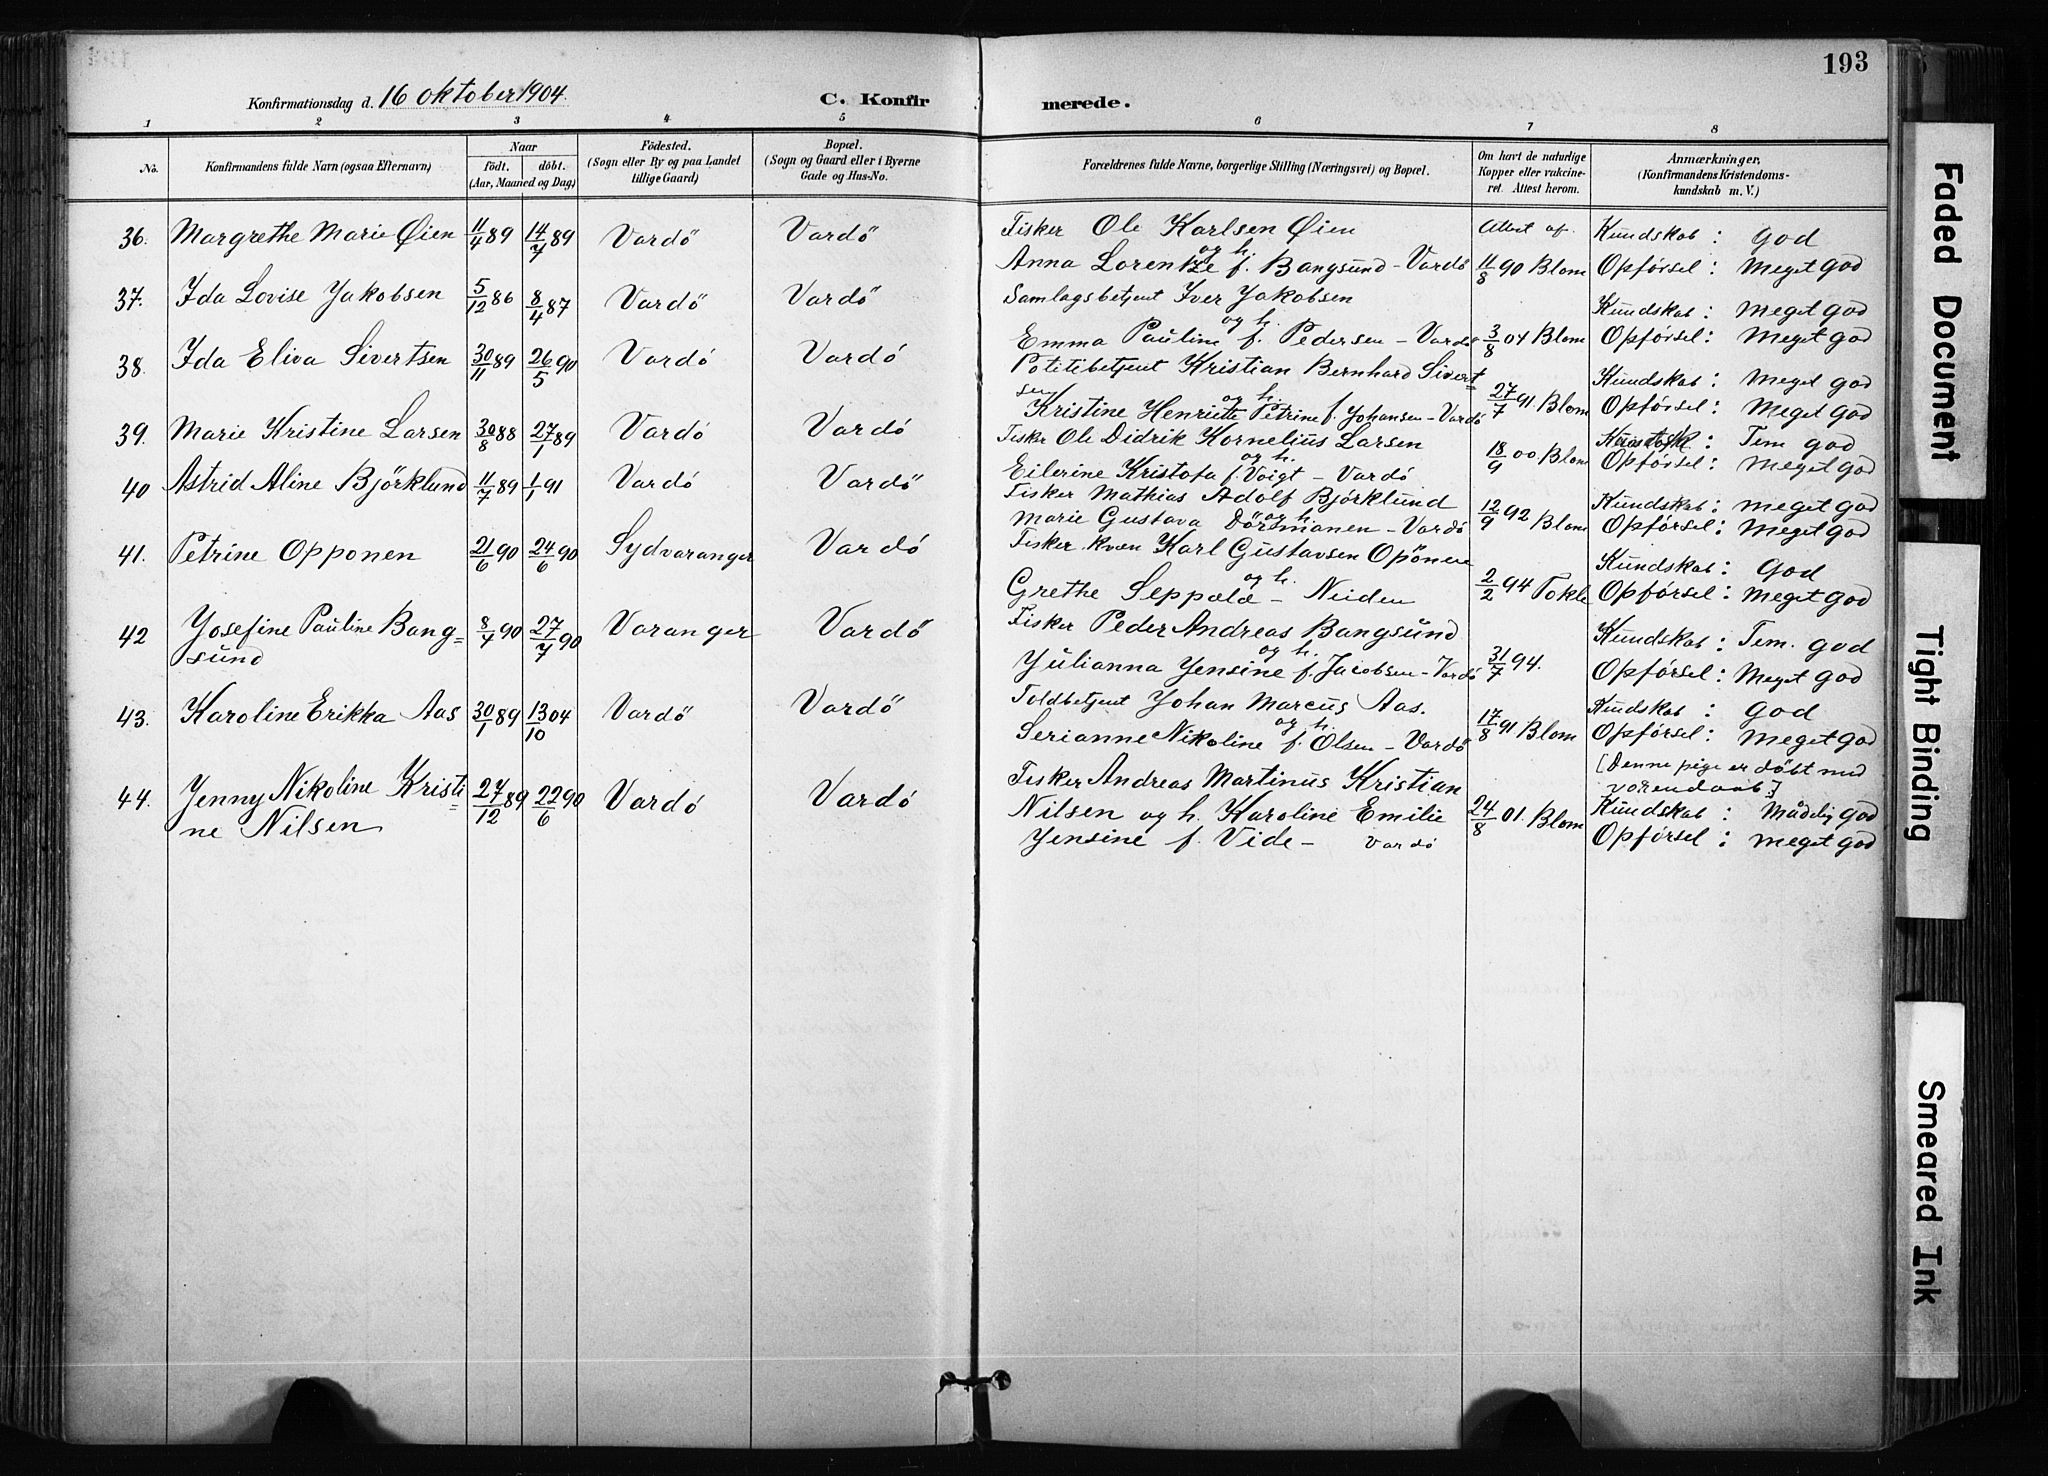 193
Konfirmationsdag d. 16 oktober 1904.
C. Konfirmerede.
1 2 3 4 5 6 7 8
No.
Konfirmandens fulde Navn (ogsaa Efternavn)
Naar
født. døbt.
(Aar, Maaned og Dag)
Födested.
(Sogn eller By og paa Landet
tillige Gaard)
Bopæl.
(Sogn og Gaard eller i Byerne
Gade og Hus-No.
Forældrenes fulde Navne, borgerlige Stilling (Næringsvei) og Bopæl.
Om havt de naturlige
Kopper eller vakcine-
ret. Attest herom.
Anmærkninger.
(Konfirmandens Kristendoms-
kundskab m. V.)
36. Margrethe Marie Øien 11/4 89 14/7 89 Vardö Vardö
Fisker Ole Karlsen Øien
og h.
Anna Lorentze f. Bangsund - Vardö
Attest af.
11/8 90 Blom
Kundskab: God
Opførsel: Meget God
37. Ida Lovise Jakobsen 5/12 86 8/4 87 Vardö Vardö
Samlagsbetjent Iver Jakobsen
og h.
Emma Pauline f. Pedersen - Vardö
3/8 04 Blom
Kundskab: Meget God
Opførsel: Meget God
38. Ida Eliva Sivertsen 30/11 89 26/5 90 Vardö Vardö
Potitibetjent Kristian Bernhard Sivert-
sen og h.
Kristine Henriette Petrine f. Johansen - Vardö
27/7 91 Blom
Kundskab: Meget God
Opførsel: Meget God
39. Marie Kristine Larsen 30/8 88 27/1 89 Vardö Vardö
Fisker Ole Didrik Kornelius Larsen
og h.
Eilerine Kristofa f. Voigt - Vardö
18/9 00 Blom
Kundsk: Tem god
Opførsel: Meget God
40 Astrid Aline Björklund 11/7 89 1/1 91 Vardö Vardö
Fisker Mathias Adolf Björklund
og h.
Marie Gustava Dörsmanen - Vardö
12/9 92 Blom
Kundskab: meget God
Opførsel: Meget God
41. Petrine Opponen 21/6 90 24/6 90 Sydvaranger Vardö
Fisker kvæn Karl Gustavsen Opönen
og h.
Grethe Seppälä - Neiden
2/2 94 Tokle
Kundskab: God
Opførsel: Meget God
42 Josefine Pauline Bang=
sund 8/4 90 27/7 90 Varanger Vardö
Fisker Peder Andreas Bangsund
og h.
Julianna Jensine f. Jacobsen - Vardö
31/7 94.
Kundskab: Tem. God
Opførsel: Meget God
43. Karoline Erikka Aas 30/1 89 13/10 04 Vardö Vardö
Toldbetjent Johan Marcus Aas.
og h.
Serianne Nikoline f. Olsen - Vardö
17/8 91 Blom
Kundskab: God
Opførsel: Meget God
[Denne pige er döbt med
voxendaab]
44. Jenny Nikoline Kristi=
ne Nilsen 27/12 89 22/6 90 Vardö Vardö
Fisker Andreas Martinus Kristian
Nilsen og h. Karoline Emilie
Jensine f. Vide - Vardö
24/8 01. Blom
Kundskab: Mådelig God
Opførsel: Meget God
Faded Document
Tight Binding
Smeared Ink